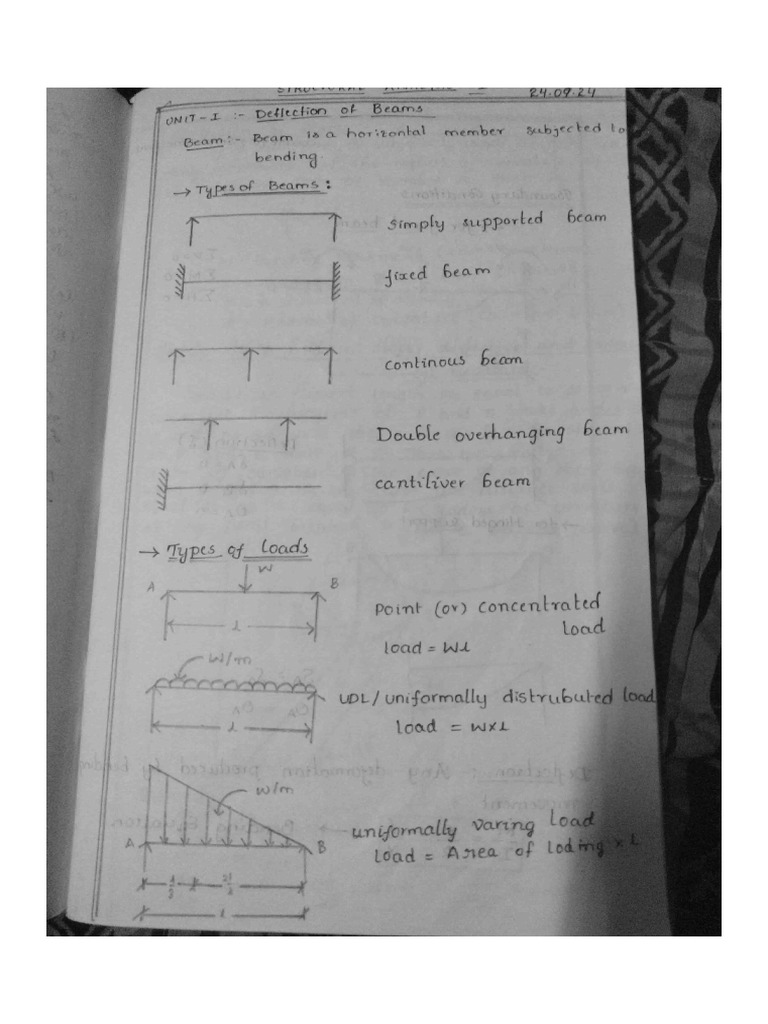 STRUCTURAL
24.09.24
UNIT-I :- Deflection of Beams
Beam:- Beam is a horizontal member subjected to
bending.
→ Types of Beams:
simply supported beam
fixed beam
continous beam
Double overhanging beam
cantiliver beam
→ Types of Loads
W
A B
Point (or) concentrated
load
l
load = Wl
W/m
UDL/uniformally distrubuted load
l
load = W×l
W/m
uniformally varing load
A B
load = Area of loding × l
l/3 2l/3
l